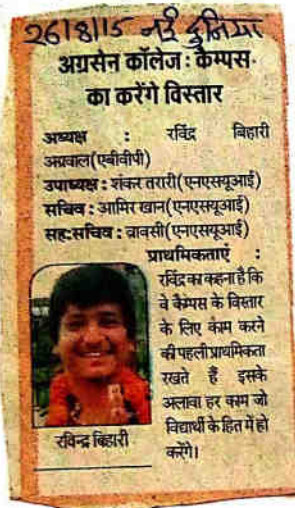 26/8/15 नई दुनिया
अग्रसेन कॉलेज : कैम्पस
का करेंगे विस्तार
अध्यक्ष : रविंद्र बिहारी
अग्रवाल(एबीवीपी)
उपाध्यक्ष : शंकर तरारी(एनएसयूआई)
सचिव : आमिर खान(एनएसयूआई)
सह:सचिव : ब्रावसी(एनएसयूआई)
प्राथमिकताएं :
रविंद्र का कहना है कि
वे कैम्पस के विस्तार
के लिए काम करने
की पहली प्राथमिकता
रखते हैं इसके
अलावा हर काम जो
विद्यार्थी के हित में हो
करेंगे।
रविन्द्र बिहारी